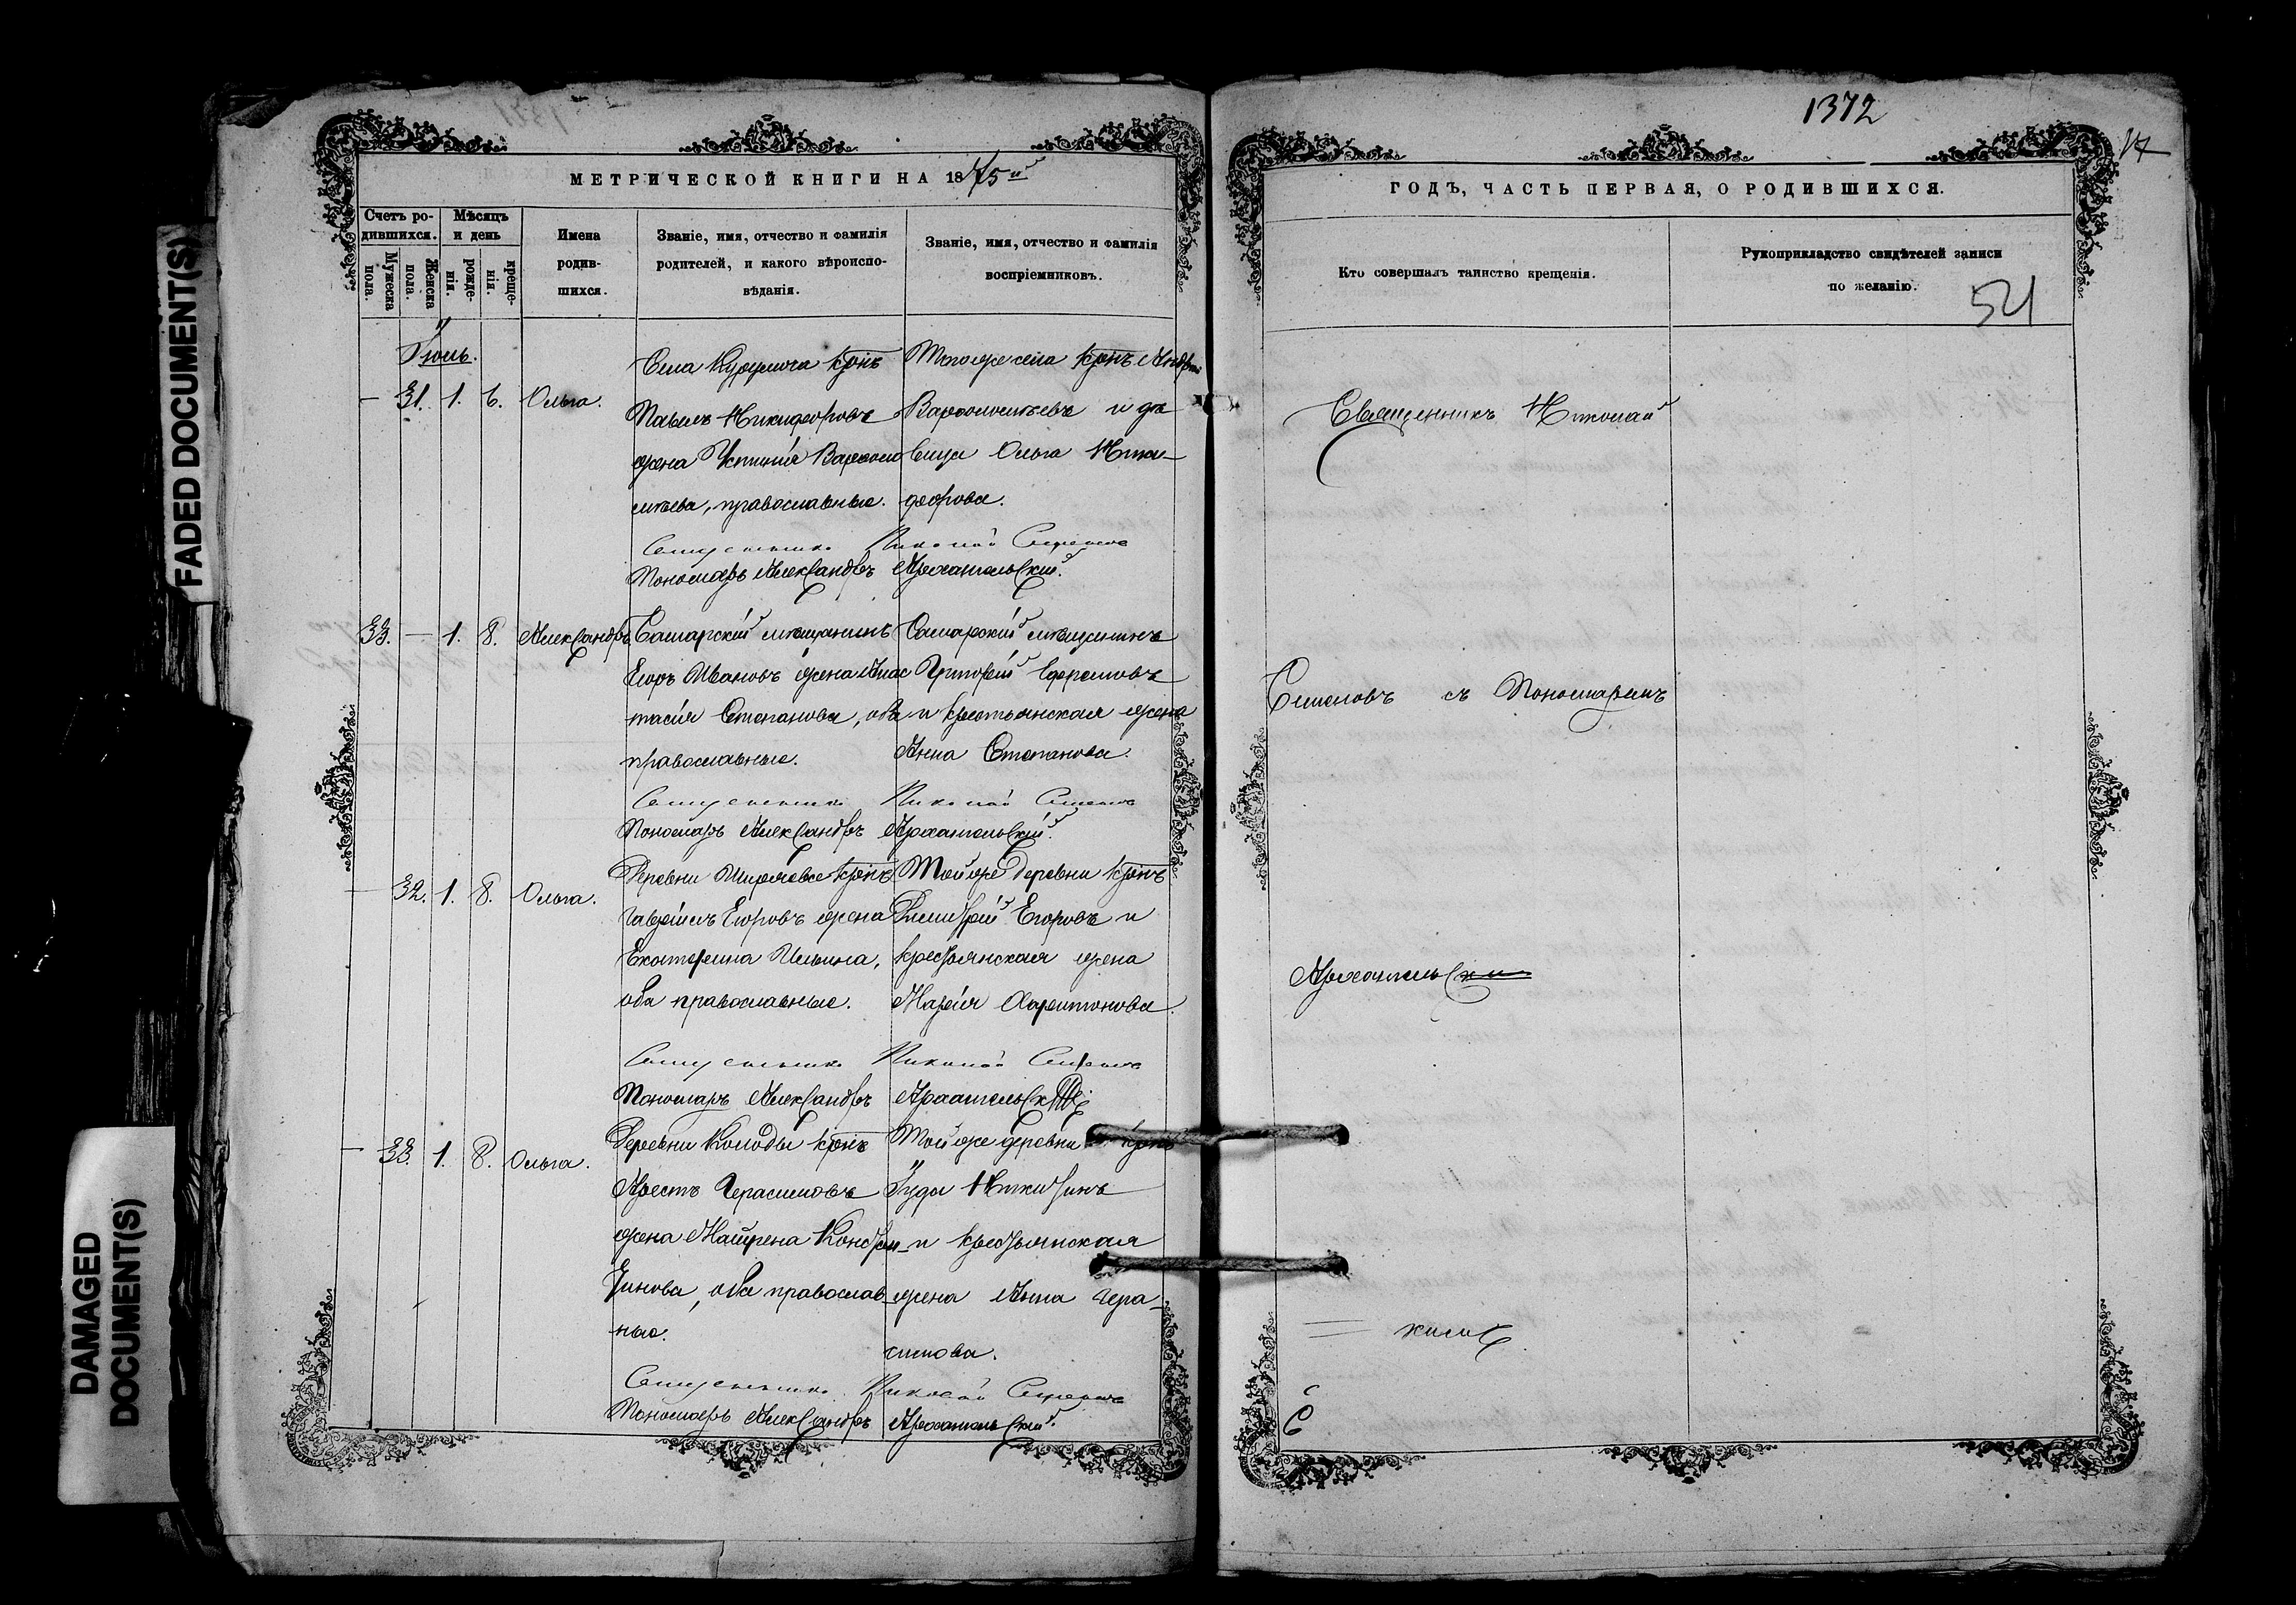 1372
17
МЕТРИЧЕСКОЙ КНИГИ НА 1875й
Счетъ родившихся.
Мужеска пола.
Женска пола.
Мѣсяцъ и день
рожденія.
крещенія.
Имена родившихся.
Званіе, имя, отчество и фамилія родителей, и какого вѣроисповѣданія.
Званіе, имя, отчество и фамилія воспріемниковъ.
Іюль.
— 31. 1. 6. Ольга.
крѣнъ
Павелъ Никифоровъ
жена Устинія Варѳоло
мѣева, православные.
Тогоже села крѣнъ Андрей
Варѳоломѣевъ и дѣ
вица Ольга Ники-
форова.
Священникъ Николай Семеновъ
Пономарь Александръ Архангельскій.
33. — 1. 8. Александръ
Самарскій мѣщанинъ
Егоръ Ивановъ жена Анас
тасія Степанова, оба
православные.
Самарскій мѣщанинъ
Григорій Ефремовъ
и крестьянская жена
Анна Степанова.
Священникъ Николай Семеновъ
Пономарь Александръ Архангельскій.
— 32. 1. 8. Ольга.
Деревни Ширяевки крѣнъ
Гавріилъ Егоровъ жена
Екатерина Ильина,
оба православные.
Той же деревни крѣнъ
Димитрій Егоровъ и
крестьянская жена
Марія Харитонова.
Священникъ Николай Семеновъ
Пономарь Александръ Архангельскій
— 33. 1. 8. Ольга.
Деревни Колоды крѣнъ
Арестъ Герасимовъ
жена Матрена Кондра-
тинова, оба православ
ные.
Той же деревни крѣнъ
Іуда Никитинъ
и крестьянская
жена Анна Гера-
симова.
Священникъ Николай Семеновъ
Пономарь Александръ Архангельскій.
ГОДЪ, ЧАСТЬ ПЕРВАЯ, О РОДИВШИХСЯ.
Кто совершалъ таинство крещенія.
Рукоприкладство свидѣтелей записи по желанію.
54
Священникъ Николай
Семеновъ съ Пономаремъ
Архангельским
= кимъ
FADED DOCUMENT(S)
DAMAGED
DOCUMENT(S)